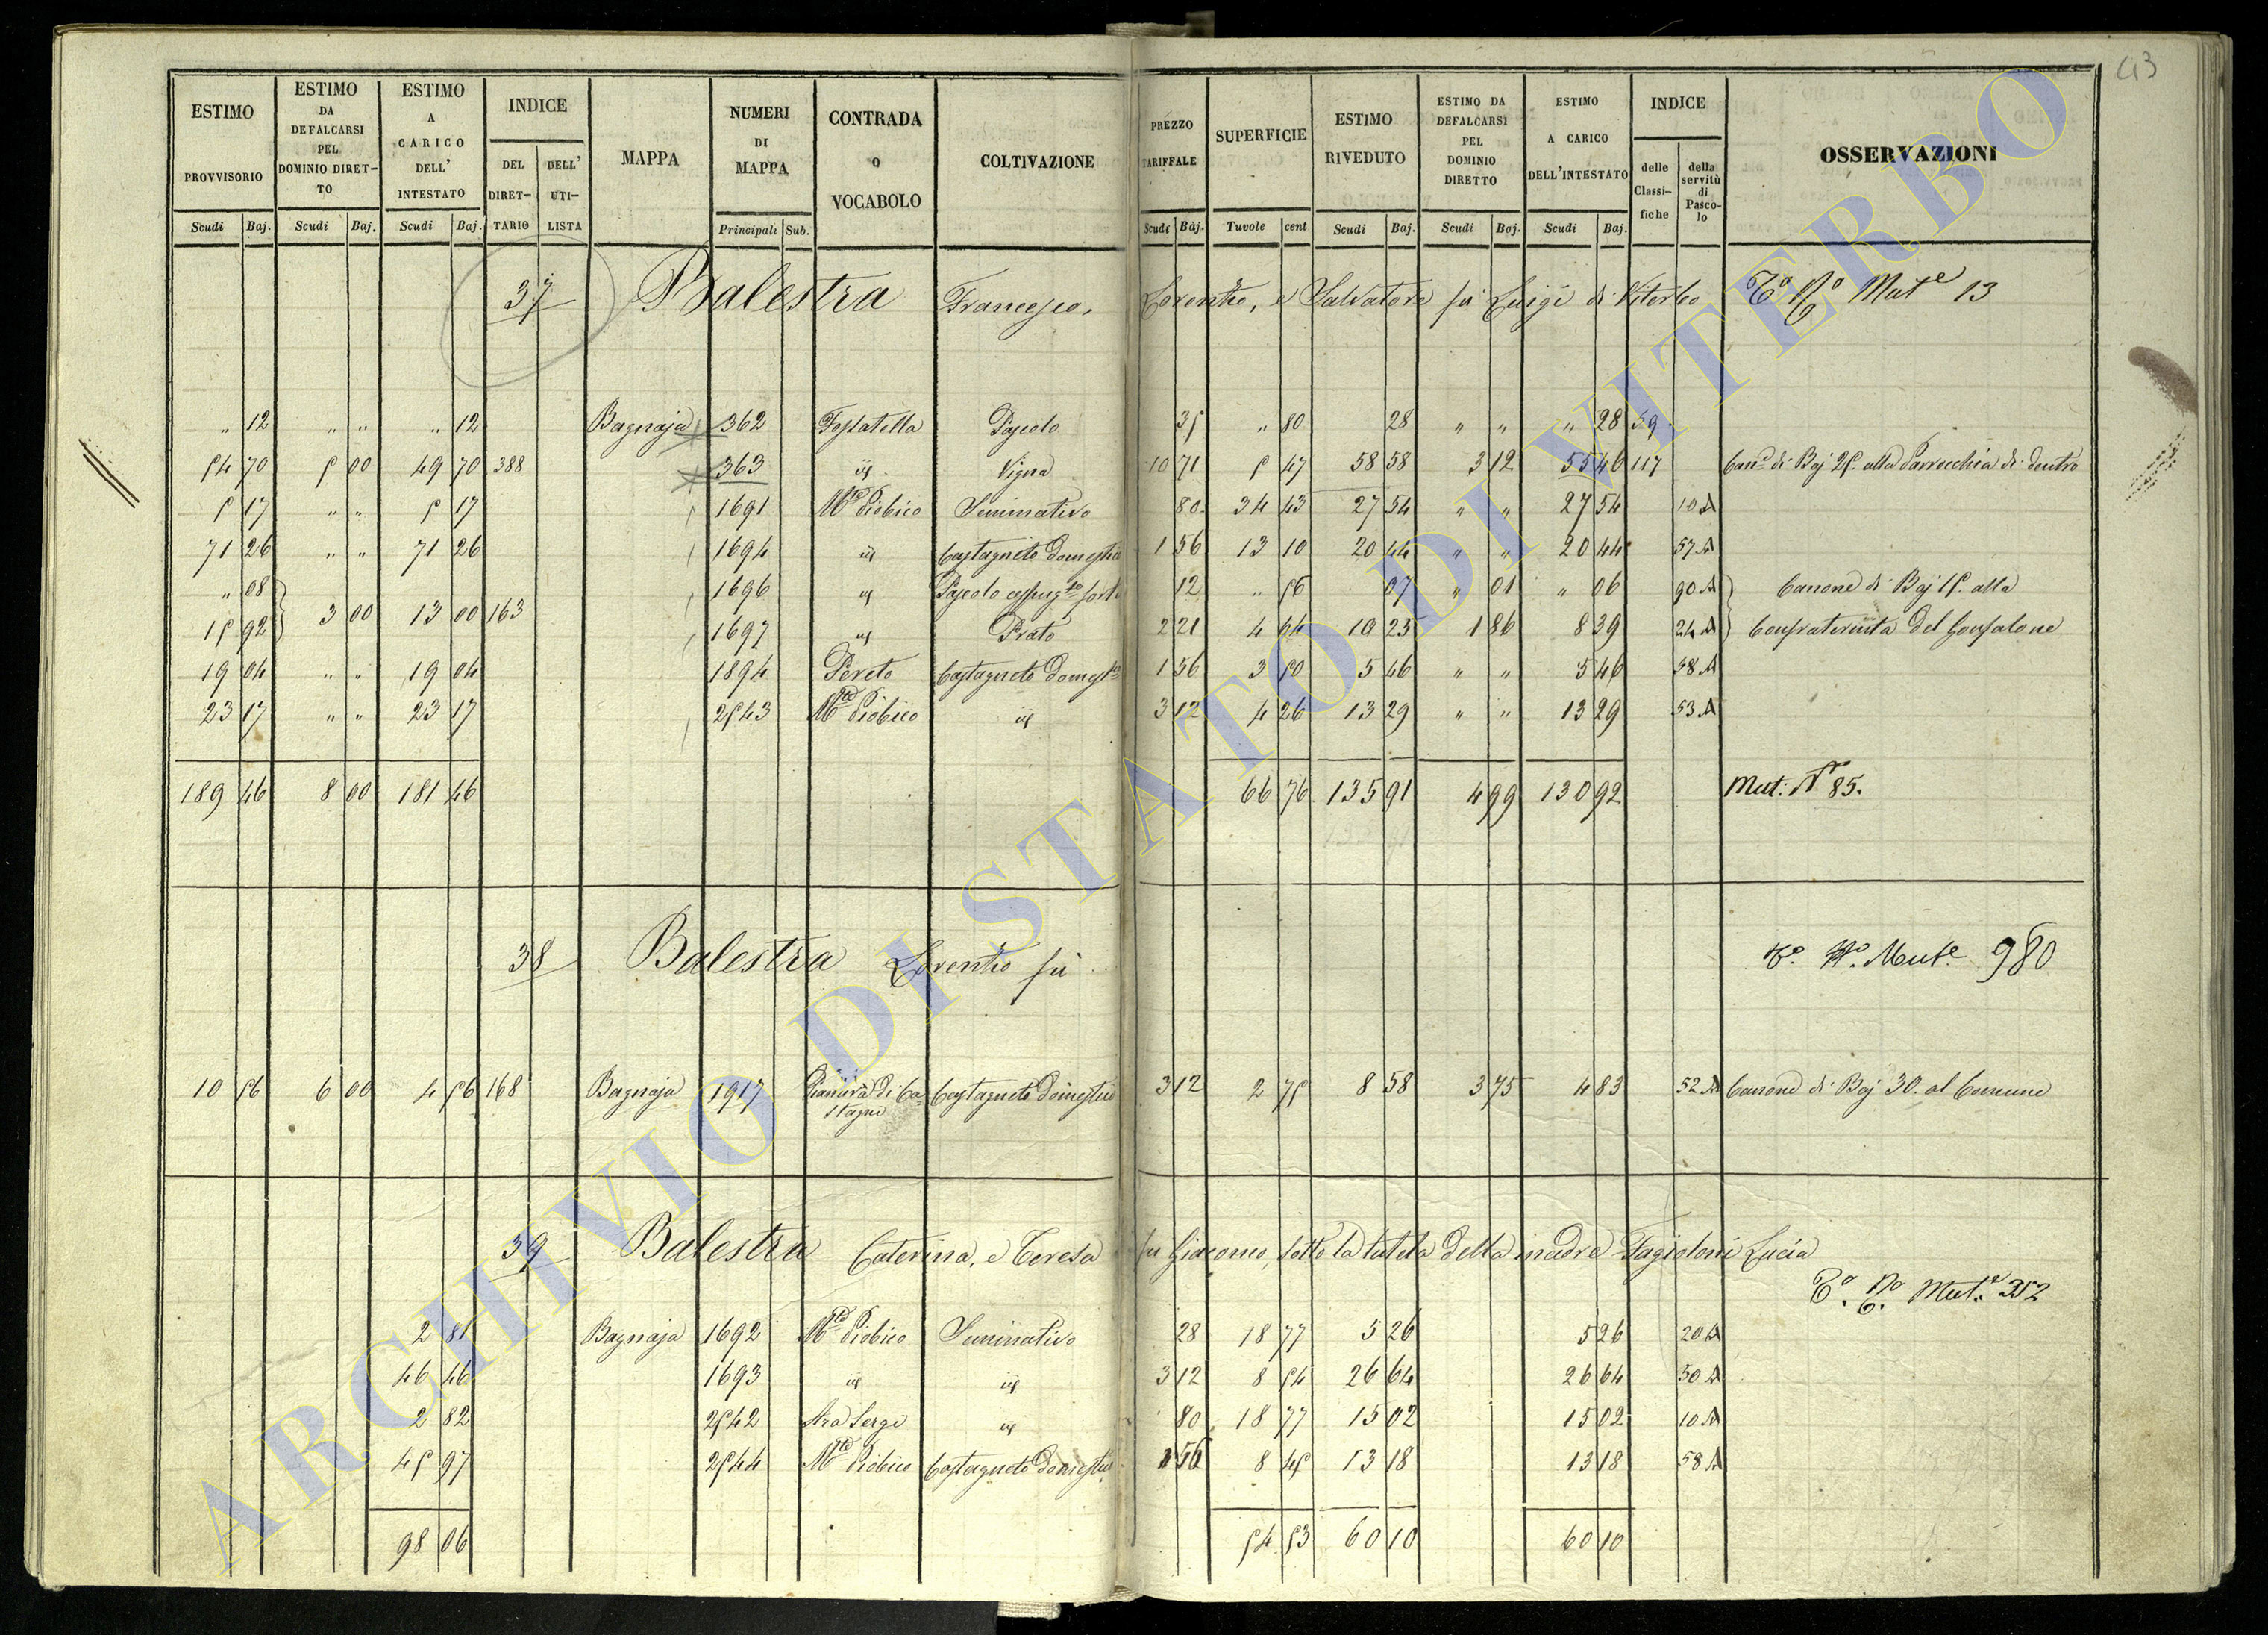 43
ESTIMO PROVVISORIO Scudi Baj. ESTIMO DA DEFALCARSI PEL DOMINIO DIRETTO Scudi Baj. ESTIMO A CARICO DELL' INTESTATO Scudi Baj. INDICE DEL DIRETTARIO DELL' UTILISTA MAPPA NUMERI DI MAPPA Principali Sub. CONTRADA O VOCABOLO COLTIVAZIONE PREZZO TARIFFALE Scudi Baj. SUPERFICIE Tavole cent ESTIMO RIVEDUTO Scudi Baj. ESTIMO DA DEFALCARSI PEL DOMINIO DIRETTO Scudi Baj. ESTIMO A CARICO DELL'INTESTATO Scudi Baj. INDICE delle Classifiche della servitù di Pascolo OSSERVAZIONI
37 Balestra Francesco, Lorenzo, e Salvatore fù Luigi di Viterbo Mut.e 13
" 12 " " " 12 Bagnaja 362 Fossatella Pascolo 35 " 80 28 " " " 28 59
54 70 5 00 49 70 388 363 id Vigna 10 71 5 47 58 58 3 12 55 46 117 Can.e di Baj 25. alla Parrocchia di dentro
5 17 " " 5 17 1691 M.te Piobico Seminativo 80 34 43 27 54 " " 27 54 10 A
71 26 " " 71 26 1694 id Castagneto domestico 1 56 13 10 20 44 " " 20 44 57 A
" 08 1696 id Pascolo cespug.to forte 12 " 56 07 " 01 " 06 90 A Canone di Baj 15. alla
15 92 3 00 13 00 163 1697 id Prato 2 21 4 64 10 25 1 86 8 39 24 A Confraternita del Gonfalone
19 04 " " 19 04 1894 Pereto Castagneto domest.co 1 56 3 50 5 46 " " 5 46 58 A
23 17 " " 23 17 2543 M.te Piobico id 3 12 4 26 13 29 " " 13 29 53 A
189 46 8 00 181 46 66 76 135 91 4 99 130 92 Mut: N. 85.
38 Balestra Lorenzo fù Mut.e 980
10 56 6 00 4 56 168 Bagnaja 1917 Pianura di Castagne Castagneto domestico 3 12 2 75 8 58 3 75 4 83 52 A Canone di Baj 30. al Comune
39 Balestra Caterina, e Teresa fu Giacomo, sotto la tutela della madre Fagioloni Lucia
Mut.e 352
2 81 Bagnaja 1692 M.te Piobico Seminativo 28 18 77 5 26 5 26 20 A
46 46 1693 id id 3 12 8 54 26 64 26 64 50 A
2 82 2542 Ara Sergi id 80 18 77 15 02 15 02 10 A
45 97 2544 M.te Piobico Castagneto domestico 1 56 8 45 13 18 13 18 58 A
98 06 54 53 60 10 60 10
ARCHIVIO DI STATO DI VITERBO